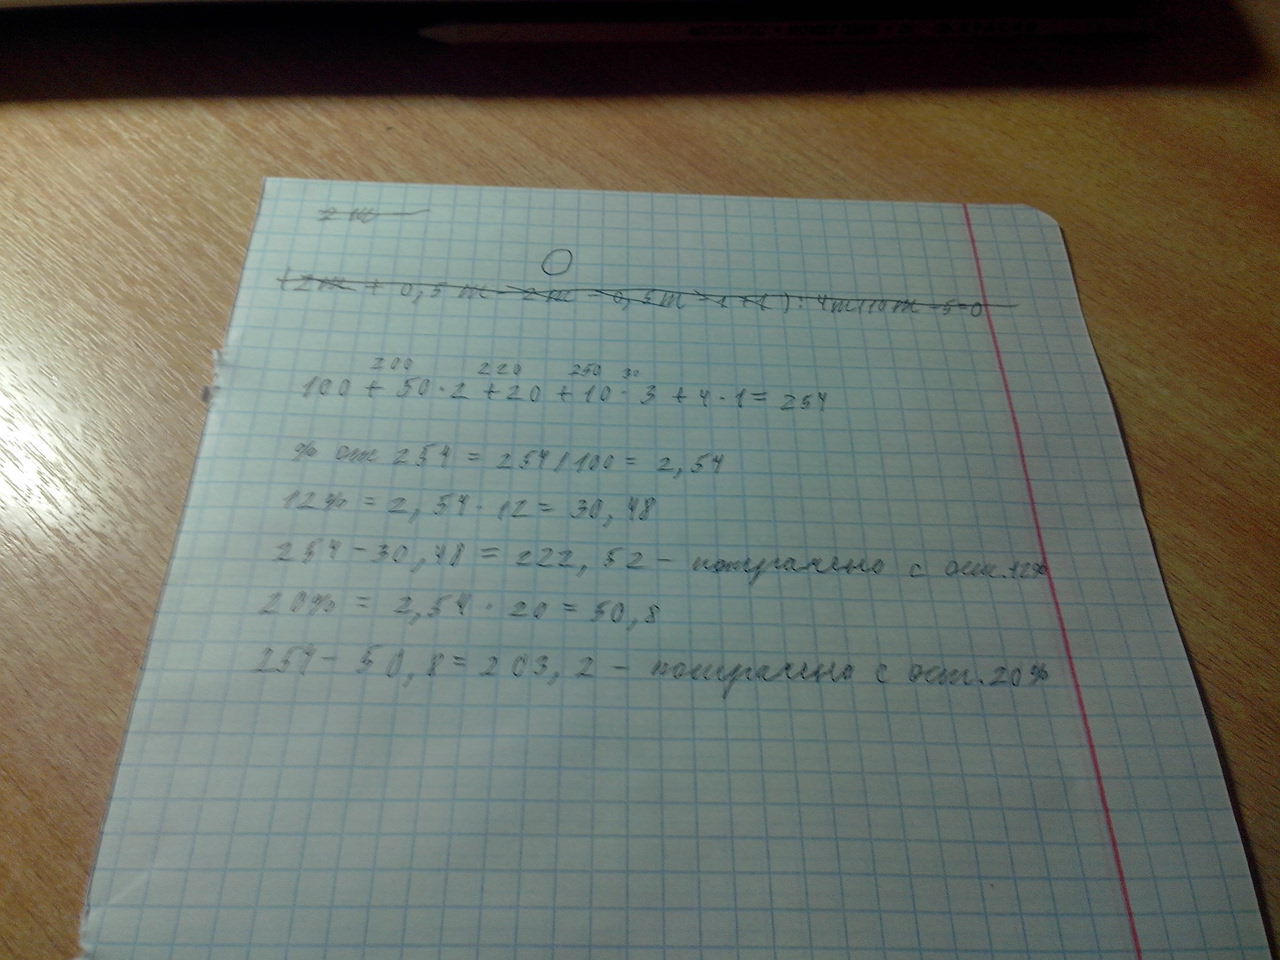 2m —
O
(2m + 0,5m - 2m - 0,5m
200 220 250 30
100 + 50 · 2 + 20 + 10 · 3 + 4 · 1 = 254
% от 254 = 254/100 = 2,54
12% = 2,54 · 12 = 30,48
254 - 30,48 = 222,52 - потрачено с ост. 12%
20% = 2,54 · 20 = 50,8
254 - 50,8 = 203,2 - потрачено с ост. 20%